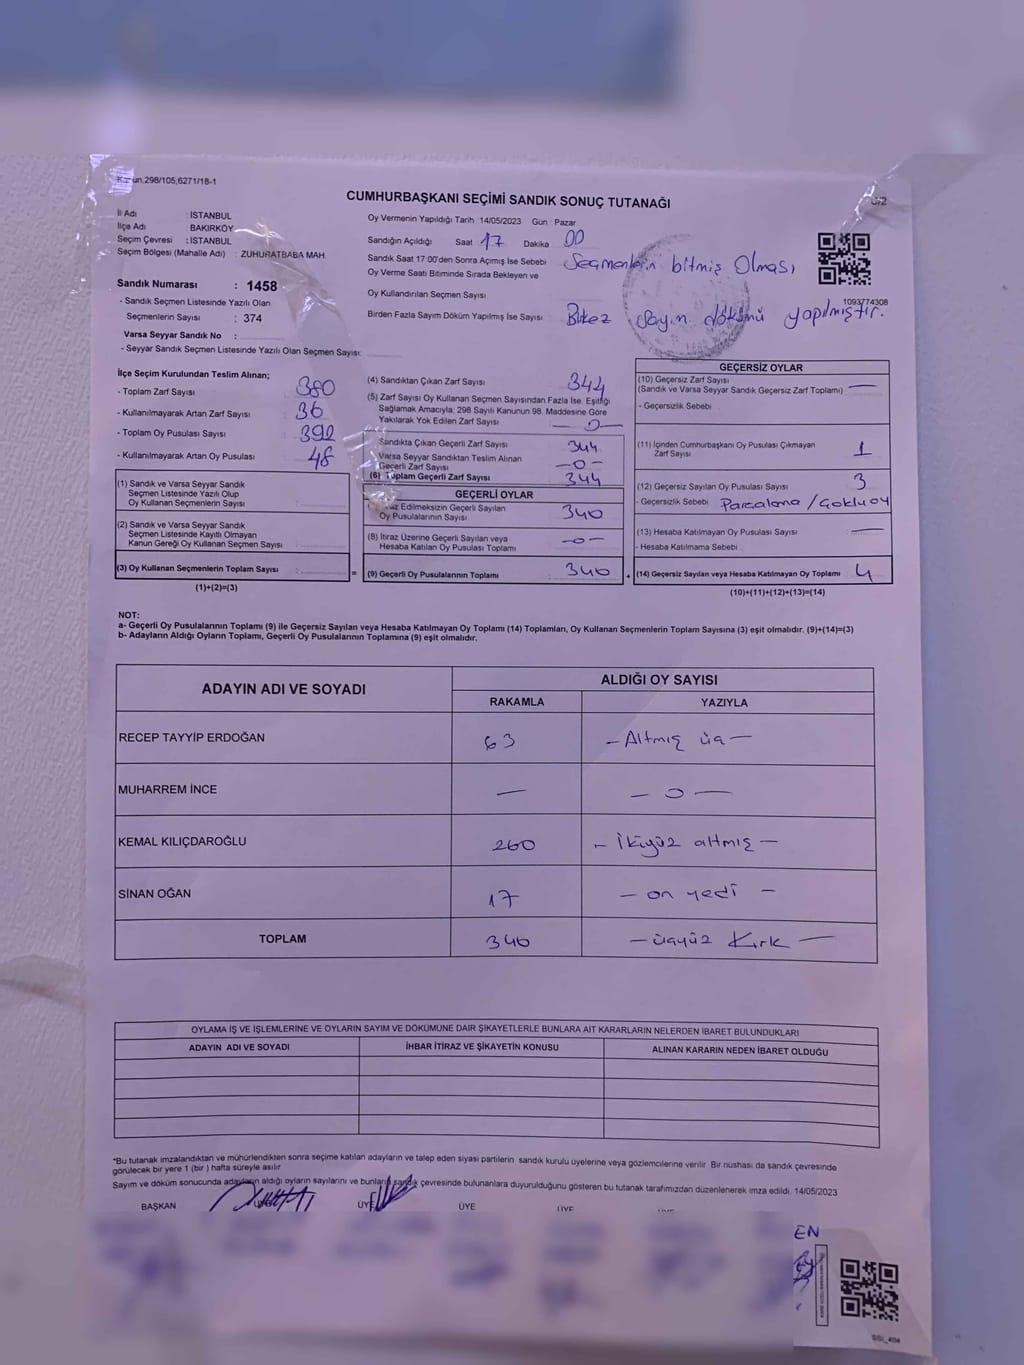 Kanun.298/105,6271/18-1
CUMHURBAŞKANI SEÇİMİ SANDIK SONUÇ TUTANAĞI
İl Adı : İSTANBUL
İlçe Adı : BAKIRKÖY
Seçim Çevresi : İSTANBUL
Seçim Bölgesi (Mahalle Adı) : ZUHURATBABA MAH.
Oy Vermenin Yapıldığı Tarih 14/05/2023 Gün Pazar
Sandığın Açıldığı Saat 17 Dakika 00
Sandık Saat 17:00'den Sonra Açımış İse Sebebi Seçmenlerin bitmiş Olması
Oy Verme Saati Bitiminde Sırada Bekleyen ve
Oy Kullandırılan Seçmen Sayısı
Birden Fazla Sayım Döküm Yapılmış İse Sayısı Bir kez sayım dökümü yapılmıştır.
1093774308
Sandık Numarası : 1458
- Sandık Seçmen Listesinde Yazılı Olan
Seçmenlerin Sayısı : 374
Varsa Seyyar Sandık No :
- Seyyar Sandık Seçmen Listesinde Yazılı Olan Seçmen Sayısı:
İlçe Seçim Kurulundan Teslim Alınan;
- Toplam Zarf Sayısı 380
- Kullanılmayarak Artan Zarf Sayısı 36
- Toplam Oy Pusulası Sayısı 392
- Kullanılmayarak Artan Oy Pusulası 48
(1) Sandık ve Varsa Seyyar Sandık
Seçmen Listesinde Yazılı Olup
Oy Kullanan Seçmenlerin Sayısı :
(2) Sandık ve Varsa Seyyar Sandık
Seçmen Listesinde Kayıtlı Olmayan
Kanun Gereği Oy Kullanan Seçmen Sayısı :
(3) Oy Kullanan Seçmenlerin Toplam Sayısı :
(1)+(2)=(3)
(4) Sandıktan Çıkan Zarf Sayısı 344
(5) Zarf Sayısı Oy Kullanan Seçmen Sayısından Fazla İse, Eşitliği
Sağlamak Amacıyla; 298 Sayılı Kanunun 98. Maddesine Göre
Yakılarak Yok Edilen Zarf Sayısı - 0 -
Sandıkta Çıkan Geçerli Zarf Sayısı 344
Varsa Seyyar Sandıktan Teslim Alınan
Geçerli Zarf Sayısı - 0 -
(6) Toplam Geçerli Zarf Sayısı 344
GEÇERLİ OYLAR
Edilmeksizin Geçerli Sayılan
Oy Pusulalarının Sayısı 340
(8) İtiraz Üzerine Geçerli Sayılan veya
Hesaba Katılan Oy Pusulası Toplamı - 0 -
= (9) Geçerli Oy Pusulalarının Toplamı 340
GEÇERSİZ OYLAR
(10) Geçersiz Zarf Sayısı
(Sandık ve Varsa Seyyar Sandık Geçersiz Zarf Toplamı) —
- Geçersizlik Sebebi
(11) İçinden Cumhurbaşkanı Oy Pusulası Çıkmayan
Zarf Sayısı 1
(12) Geçersiz Sayılan Oy Pusulası Sayısı 3
- Geçersizlik Sebebi Parçalama / Çoklu oy
(13) Hesaba Katılmayan Oy Pusulası Sayısı —
- Hesaba Katılmama Sebebi
+ (14) Geçersiz Sayılan veya Hesaba Katılmayan Oy Toplamı 4
(10)+(11)+(12)+(13)=(14)
NOT:
a- Geçerli Oy Pusulalarının Toplamı (9) ile Geçersiz Sayılan veya Hesaba Katılmayan Oy Toplamı (14) Toplamları, Oy Kullanan Seçmenlerin Toplam Sayısına (3) eşit olmalıdır. (9)+(14)=(3)
b- Adayların Aldığı Oyların Toplamı, Geçerli Oy Pusulalarının Toplamına (9) eşit olmalıdır.
ADAYIN ADI VE SOYADI
ALDIĞI OY SAYISI
RAKAMLA YAZIYLA
RECEP TAYYİP ERDOĞAN 63 - Altmış üç -
MUHARREM İNCE — - 0 -
KEMAL KILIÇDAROĞLU 260 - İkiyüz altmış -
SİNAN OĞAN 17 - on yedi -
TOPLAM 340 - üçyüz Kırk -
OYLAMA İŞ VE İŞLEMLERİNE VE OYLARIN SAYIM VE DÖKÜMÜNE DAİR ŞİKAYETLERLE BUNLARA AİT KARARLARIN NELERDEN İBARET BULUNDUKLARI
ADAYIN ADI VE SOYADI İHBAR İTİRAZ VE ŞİKAYETİN KONUSU ALINAN KARARIN NEDEN İBARET OLDUĞU
*Bu tutanak imzalandıktan ve mühürlendikten sonra seçime katılan adayların ve talep eden siyasi partilerin sandık kurulu üyelerine veya gözlemcilerine verilir. Bir nüshası da sandık çevresinde
görülecek bir yere 1 (bir ) hafta süreyle asılır
Sayım ve döküm sonucunda adayların aldığı oyların sayılarını ve bunların sandık çevresinde bulunanlara duyurulduğunu gösteren bu tutanak tarafımızdan düzenlenerek imza edildi. 14/05/2023
BAŞKAN ÜYE ÜYE ÜYE
EN
SSİ_404